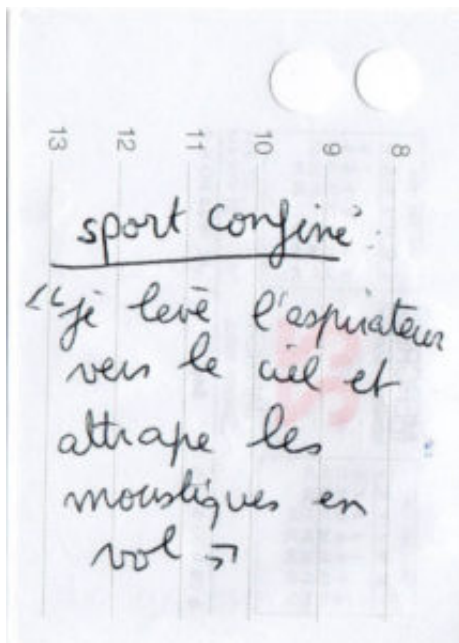 8
9
10
11
12
13
sport confiné :
"je lève l'aspirateur
vers le ciel et
attrape les
moustiques en
vol »